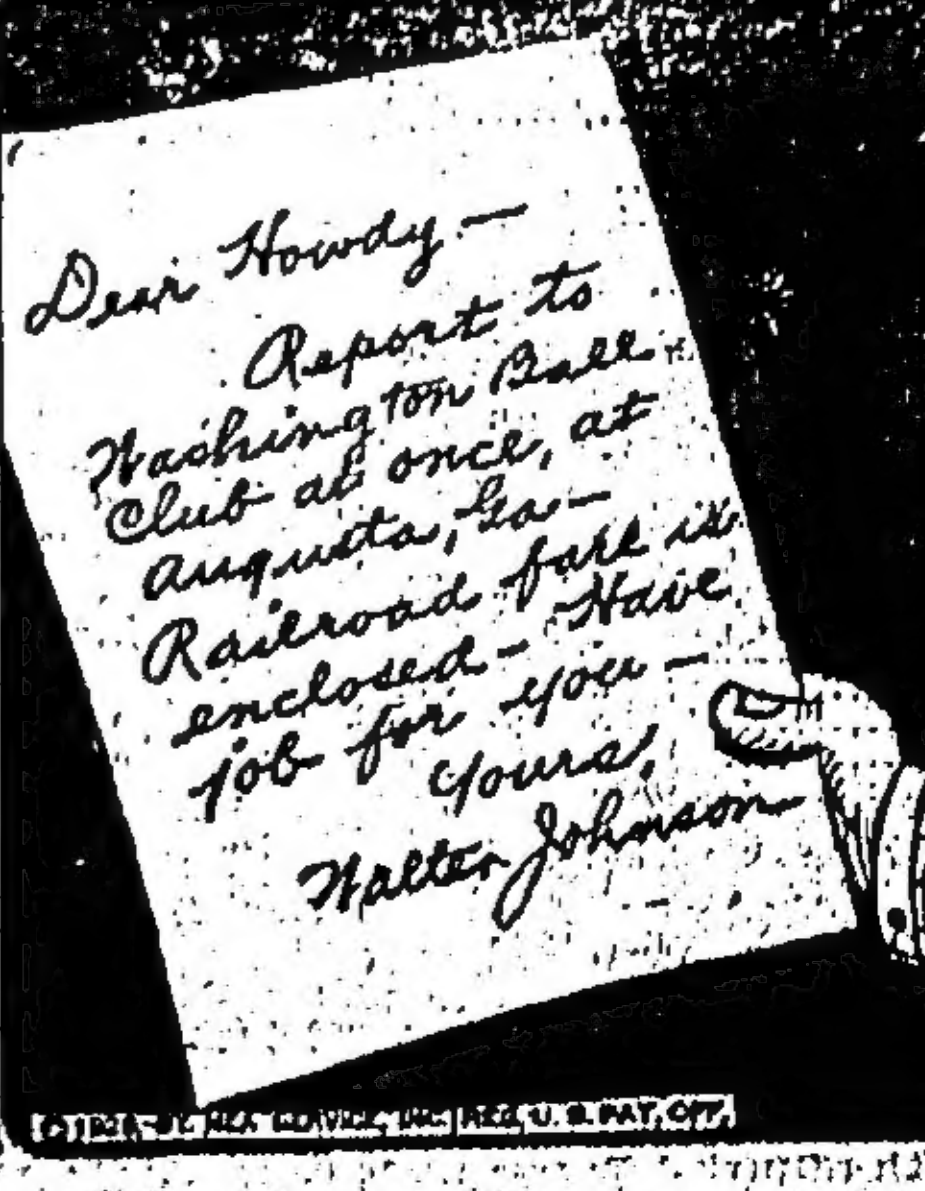 Dear Howdy —
Report to
Washington Ball
Club at once, at
Augusta, Ga —
Railroad fare is
enclosed — Have
job for you —
Yours,
Walter Johnson
BY NEA SERVICE, INC. REG. U. S. PAT. OFF.